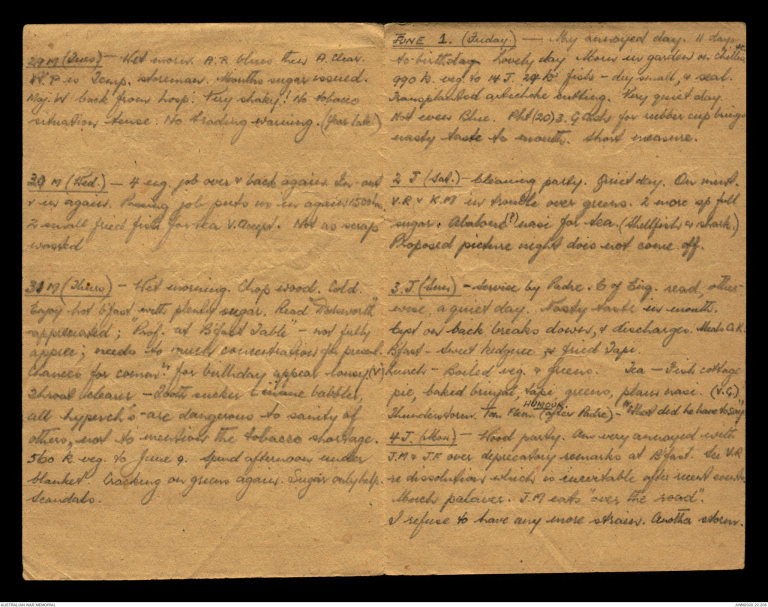 29 M (Tues) — Wet morn. A.R blues then A. Clear.
V.P is Temp. storeman. Months sugar issued.
Maj. W back from hosp. Very shaky! No tobacco
situation tense. No trading warning. (for late)
30 M (Wed.) — 4 eng. job over & back again. In - out
& in again. job puts us in again 1500 hrs.
2 small fried fish for tea V. Accept. Not a scrap
wasted
31 M (Thurs) — Wet morning. Chop wood. Cold.
Enjoy hot b'fast with plenty sugar. Read "Dodsworth"
appreciated; "Prof. at B'fast Table" - not fully
apprec; needs too much concentration
chances for for birthday appeal lousy. (V)
Throat clearer - Tooth sucker & inane babbler,
all hyperch's - are dangerous to sanity of
others, not to mention the tobacco shortage.
560 k veg. to June 9. Spend afternoon under
blanket. Cracking on greens again. Sugar only help.
Scandals.
JUNE 1. (Friday) — May annoyed day. 11 days
to birthday. Lovely day. Morn in garden w. Chellis
990 k. veg to 14 J. 24 k fish - dry small, & seal.
Transplanted artichoke cutting. Very quiet day.
Not even Blue. Pht (20) 3. G for rubber cup brings
nasty taste to mouth. Short measure.
2 J (Sat.) — Cleaning party. Quiet day. On ment.
V.R & K.M in trouble over greens. 2 more sp full
sugar. Abalone (?) nasi for tea. (Shellfish & shark.)
Proposed picture night does not come off.
3. J (Sun) — Service by Padre. C of Eng. read, other-
wise, a quiet day. Nasty taste in mouth.
Cyst on back breaks down, & discharges. Meals O.K.
B'fast - Sweet kedgeree & fried Tapi.
Lunch - Boiled veg. & greens. Tea - Fish cottage
pie, baked brinjal, tapi greens, plain nasi. (V.G.)
Thunderstorm. HUMOUR. (after Padre) - "What did he have to say"
4 J. (Mon) — Wood party. Am very annoyed with
J.M & J.F over deprecatory remarks at B'fast. See V.R
re dissolution which is inevitable after recent events.
Much palaver. J.M eats "over the road".
I refuse to have any more strain. Another storm.
AUSTRALIAN WAR MEMORIAL